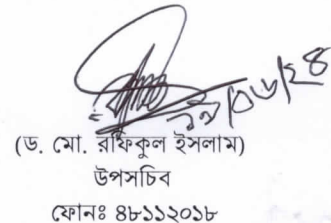 (ড. মো. রফিকুল ইসলাম)
উপসচিব
ফোনঃ ৪৮১১২০১৮